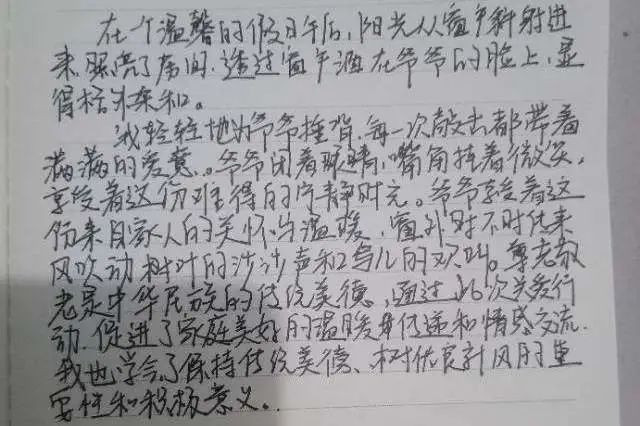 在一个温馨的假日午后,阳光从窗户斜射进
来照亮了房间.透过窗户洒在爷爷的脸上,显
得格外柔和。
我轻轻地为爷爷捶背.每一次敲击都带着
满满的爱意。爷爷闭着眼睛,嘴角挂着微笑,
享受着这份难得的宁静时光。爷爷享受着这
份来自家人的关怀与温暖,窗外时不时传来
风吹动树叶的沙沙声和鸟儿的欢叫。尊老敬
老是中华民族的传统美德,通过此次关爱行
动.促进了家庭美好的温暖传递和情感交流.
我也学会了保持传统美德、树优良新风的重
要性和积极意义。